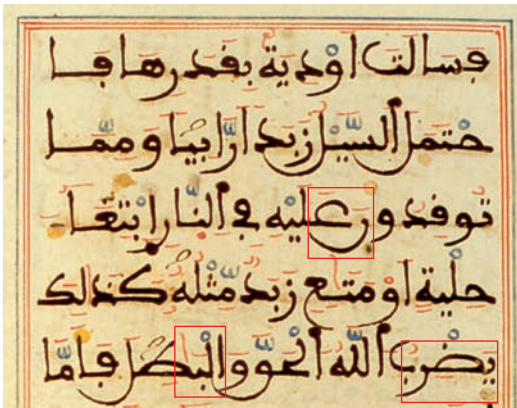 فسالت اودية بقدرها فا
حتمل السّيل زبدا رّابيا وممّا
توقدون عليه في النّار ابتغاء
حلية او متٰع زبد مّثله كذلك
يضرب الله الحقّ والبٰطل فامّا